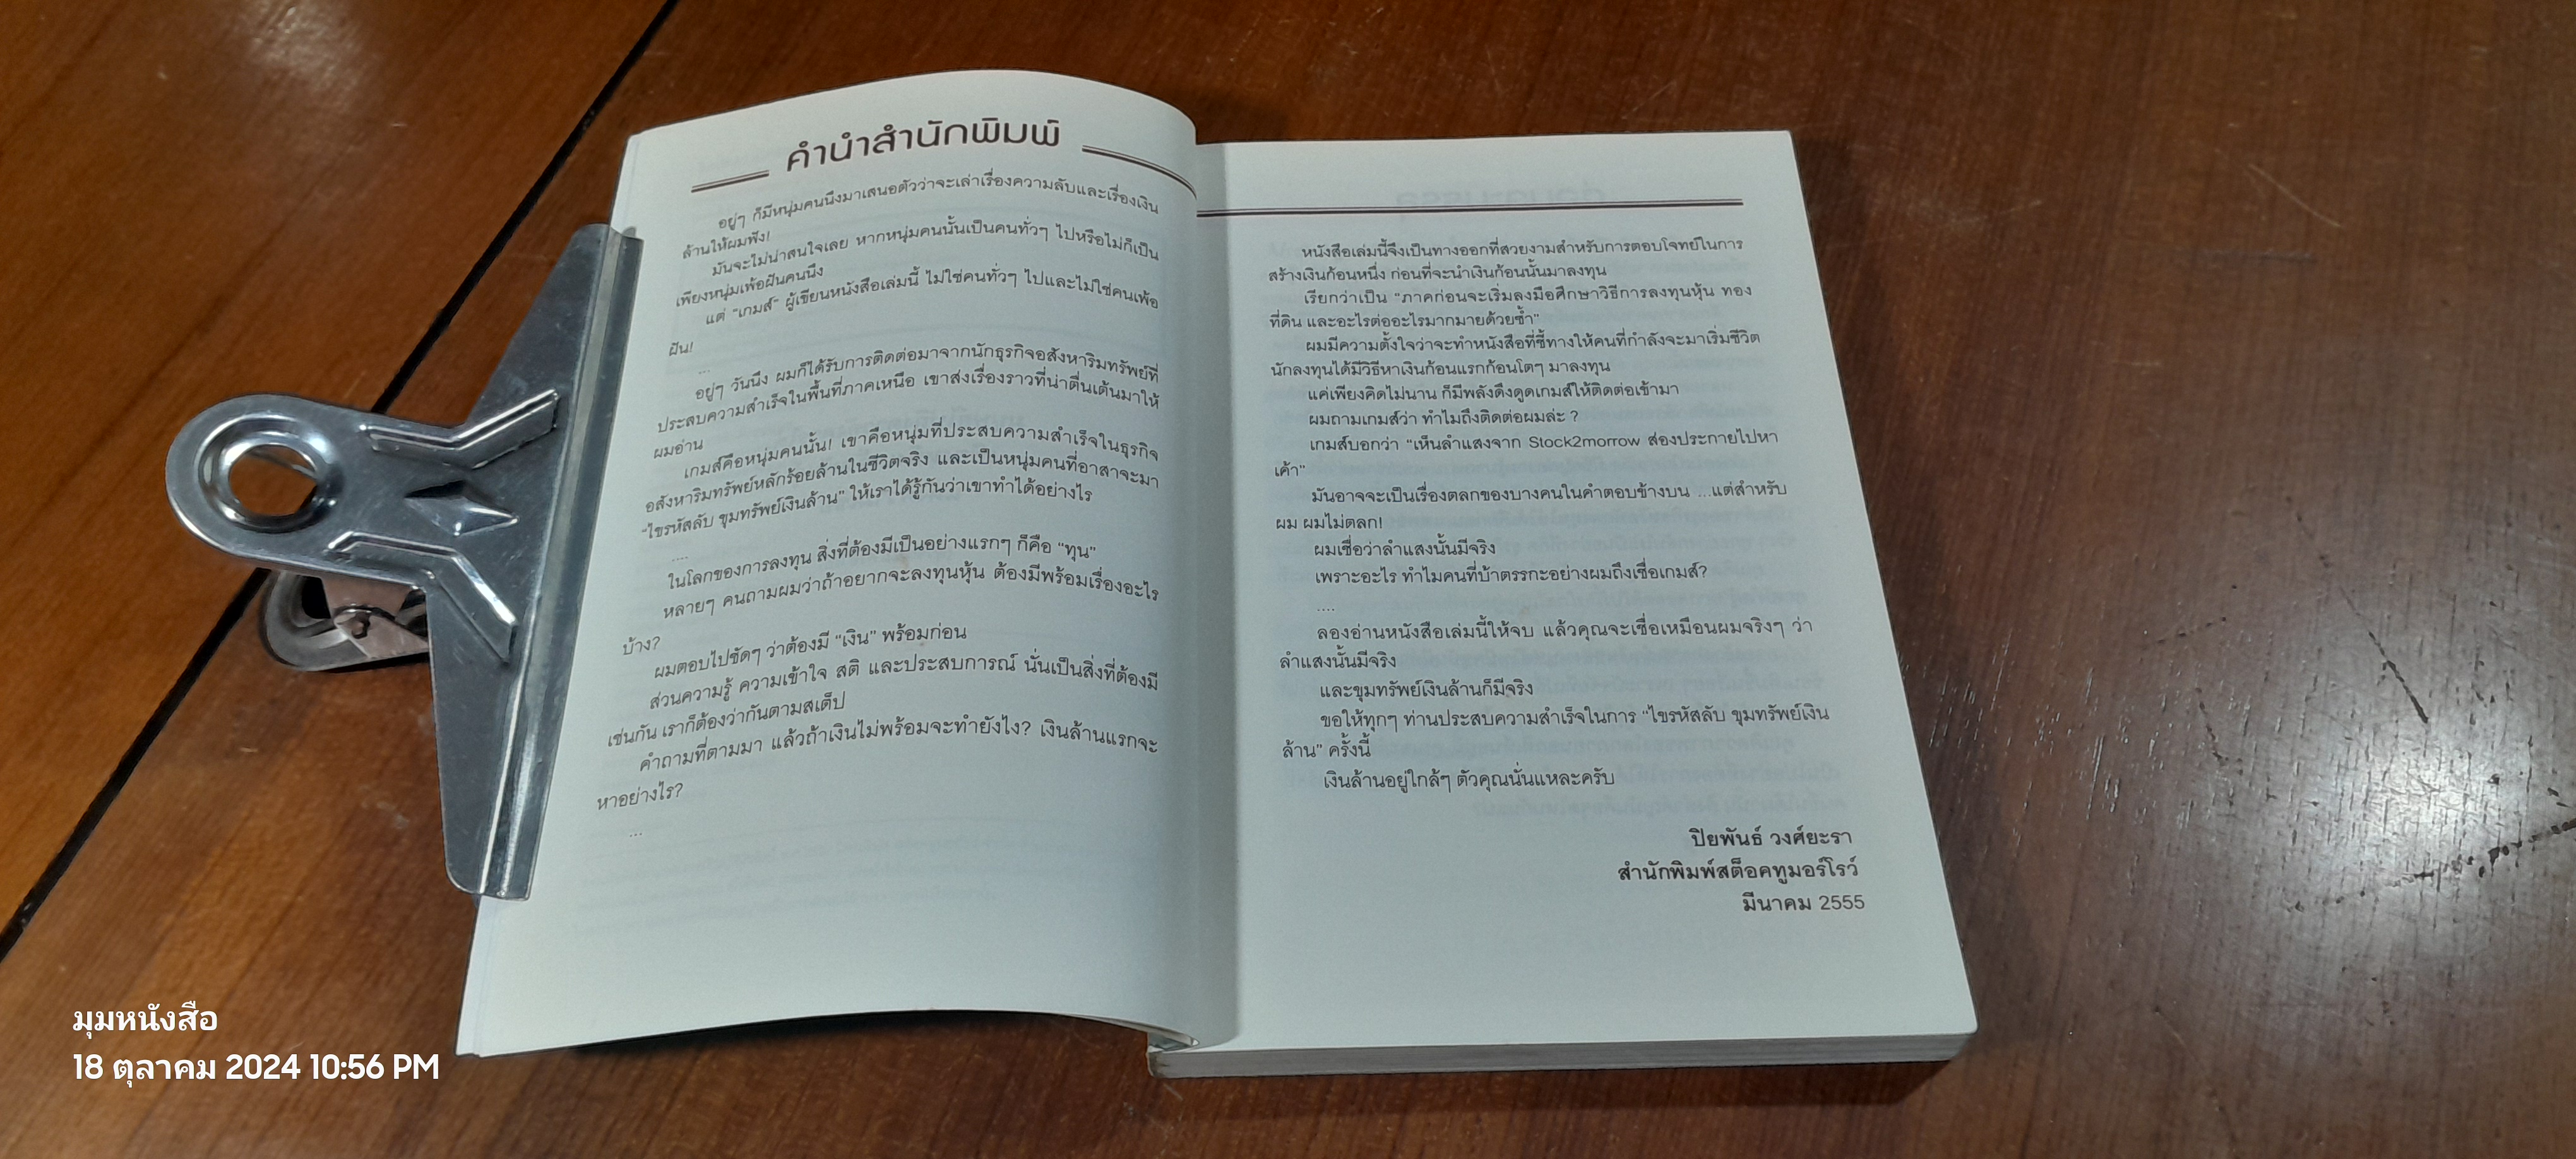 คำนำสำนักพิมพ์
อยู่ๆ ก็มีหนุ่มคนนึงมาเสนอตัวว่าจะเล่าเรื่องความลับและเรื่องเงิน
ล้านให้ผมฟัง!
มันจะไม่น่าสนใจเลย หากหนุ่มคนนั้นเป็นคนทั่วๆ ไปหรือไม่ก็เป็น
เพียงหนุ่มเพ้อฝันคนนึง
แต่ "เกมส์" ผู้เขียนหนังสือเล่มนี้ ไม่ใช่คนทั่วๆ ไปและไม่ใช่คนเพ้อ
ฝัน!
...
อยู่ๆ วันนึง ผมก็ได้รับการติดต่อมาจากนักธุรกิจอสังหาริมทรัพย์ที่
ประสบความสำเร็จในพื้นที่ภาคเหนือ เขาส่งเรื่องราวที่น่าตื่นเต้นมาให้
ผมอ่าน
เกมส์คือหนุ่มคนนั้น! เขาคือหนุ่มที่ประสบความสำเร็จในธุรกิจ
อสังหาริมทรัพย์หลักร้อยล้านในชีวิตจริง และเป็นหนุ่มคนที่อาสาจะมา
"ไขรหัสลับ ขุมทรัพย์เงินล้าน" ให้เราได้รู้กันว่าเขาทำได้อย่างไร
....
ในโลกของการลงทุน สิ่งที่ต้องมีเป็นอย่างแรกๆ ก็คือ "ทุน"
หลายๆ คนถามผมว่าถ้าอยากจะลงทุนหุ้น ต้องมีพร้อมเรื่องอะไร
บ้าง?
ผมตอบไปชัดๆ ว่าต้องมี "เงิน" พร้อมก่อน
ส่วนความรู้ ความเข้าใจ สติ และประสบการณ์ นั่นเป็นสิ่งที่ต้องมี
เช่นกัน เราก็ต้องว่ากันตามสเต็ป
คำถามที่ตามมา แล้วถ้าเงินไม่พร้อมจะทำยังไง? เงินล้านแรกจะ
หาอย่างไร?
...
หนังสือเล่มนี้จึงเป็นทางออกที่สวยงามสำหรับการตอบโจทย์ในการ
สร้างเงินก้อนหนึ่ง ก่อนที่จะนำเงินก้อนนั้นมาลงทุน
เรียกว่าเป็น "ภาคก่อนจะเริ่มลงมือศึกษาวิธีการลงทุนหุ้น ทอง
ที่ดิน และอะไรต่ออะไรมากมายด้วยซ้ำ"
ผมมีความตั้งใจว่าจะทำหนังสือที่ชี้ทางให้คนที่กำลังจะมาเริ่มชีวิต
นักลงทุนได้มีวิธีหาเงินก้อนแรกก้อนโตๆ มาลงทุน
แค่เพียงคิดไม่นาน ก็มีพลังดึงดูดเกมส์ให้ติดต่อเข้ามา
ผมถามเกมส์ว่า ทำไมถึงติดต่อผมล่ะ ?
เกมส์บอกว่า "เห็นลำแสงจาก Stock2morrow ส่องประกายไปหา
เค้า"
มันอาจจะเป็นเรื่องตลกของบางคนในคำตอบข้างบน ...แต่สำหรับ
ผม ผมไม่ตลก!
ผมเชื่อว่าลำแสงนั้นมีจริง
เพราะอะไร ทำไมคนที่บ้าตรรกะอย่างผมถึงเชื่อเกมส์?
....
ลองอ่านหนังสือเล่มนี้ให้จบ แล้วคุณจะเชื่อเหมือนผมจริงๆ ว่า
ลำแสงนั้นมีจริง
และขุมทรัพย์เงินล้านก็มีจริง
ขอให้ทุกๆ ท่านประสบความสำเร็จในการ "ไขรหัสลับ ขุมทรัพย์เงิน
ล้าน" ครั้งนี้
เงินล้านอยู่ใกล้ๆ ตัวคุณนั่นแหละครับ
ปิยพันธ์ วงศ์ยะรา
สำนักพิมพ์สต็อคทูมอร์โรว์
มีนาคม 2555
มุมหนังสือ
18 ตุลาคม 2024 10:56 PM